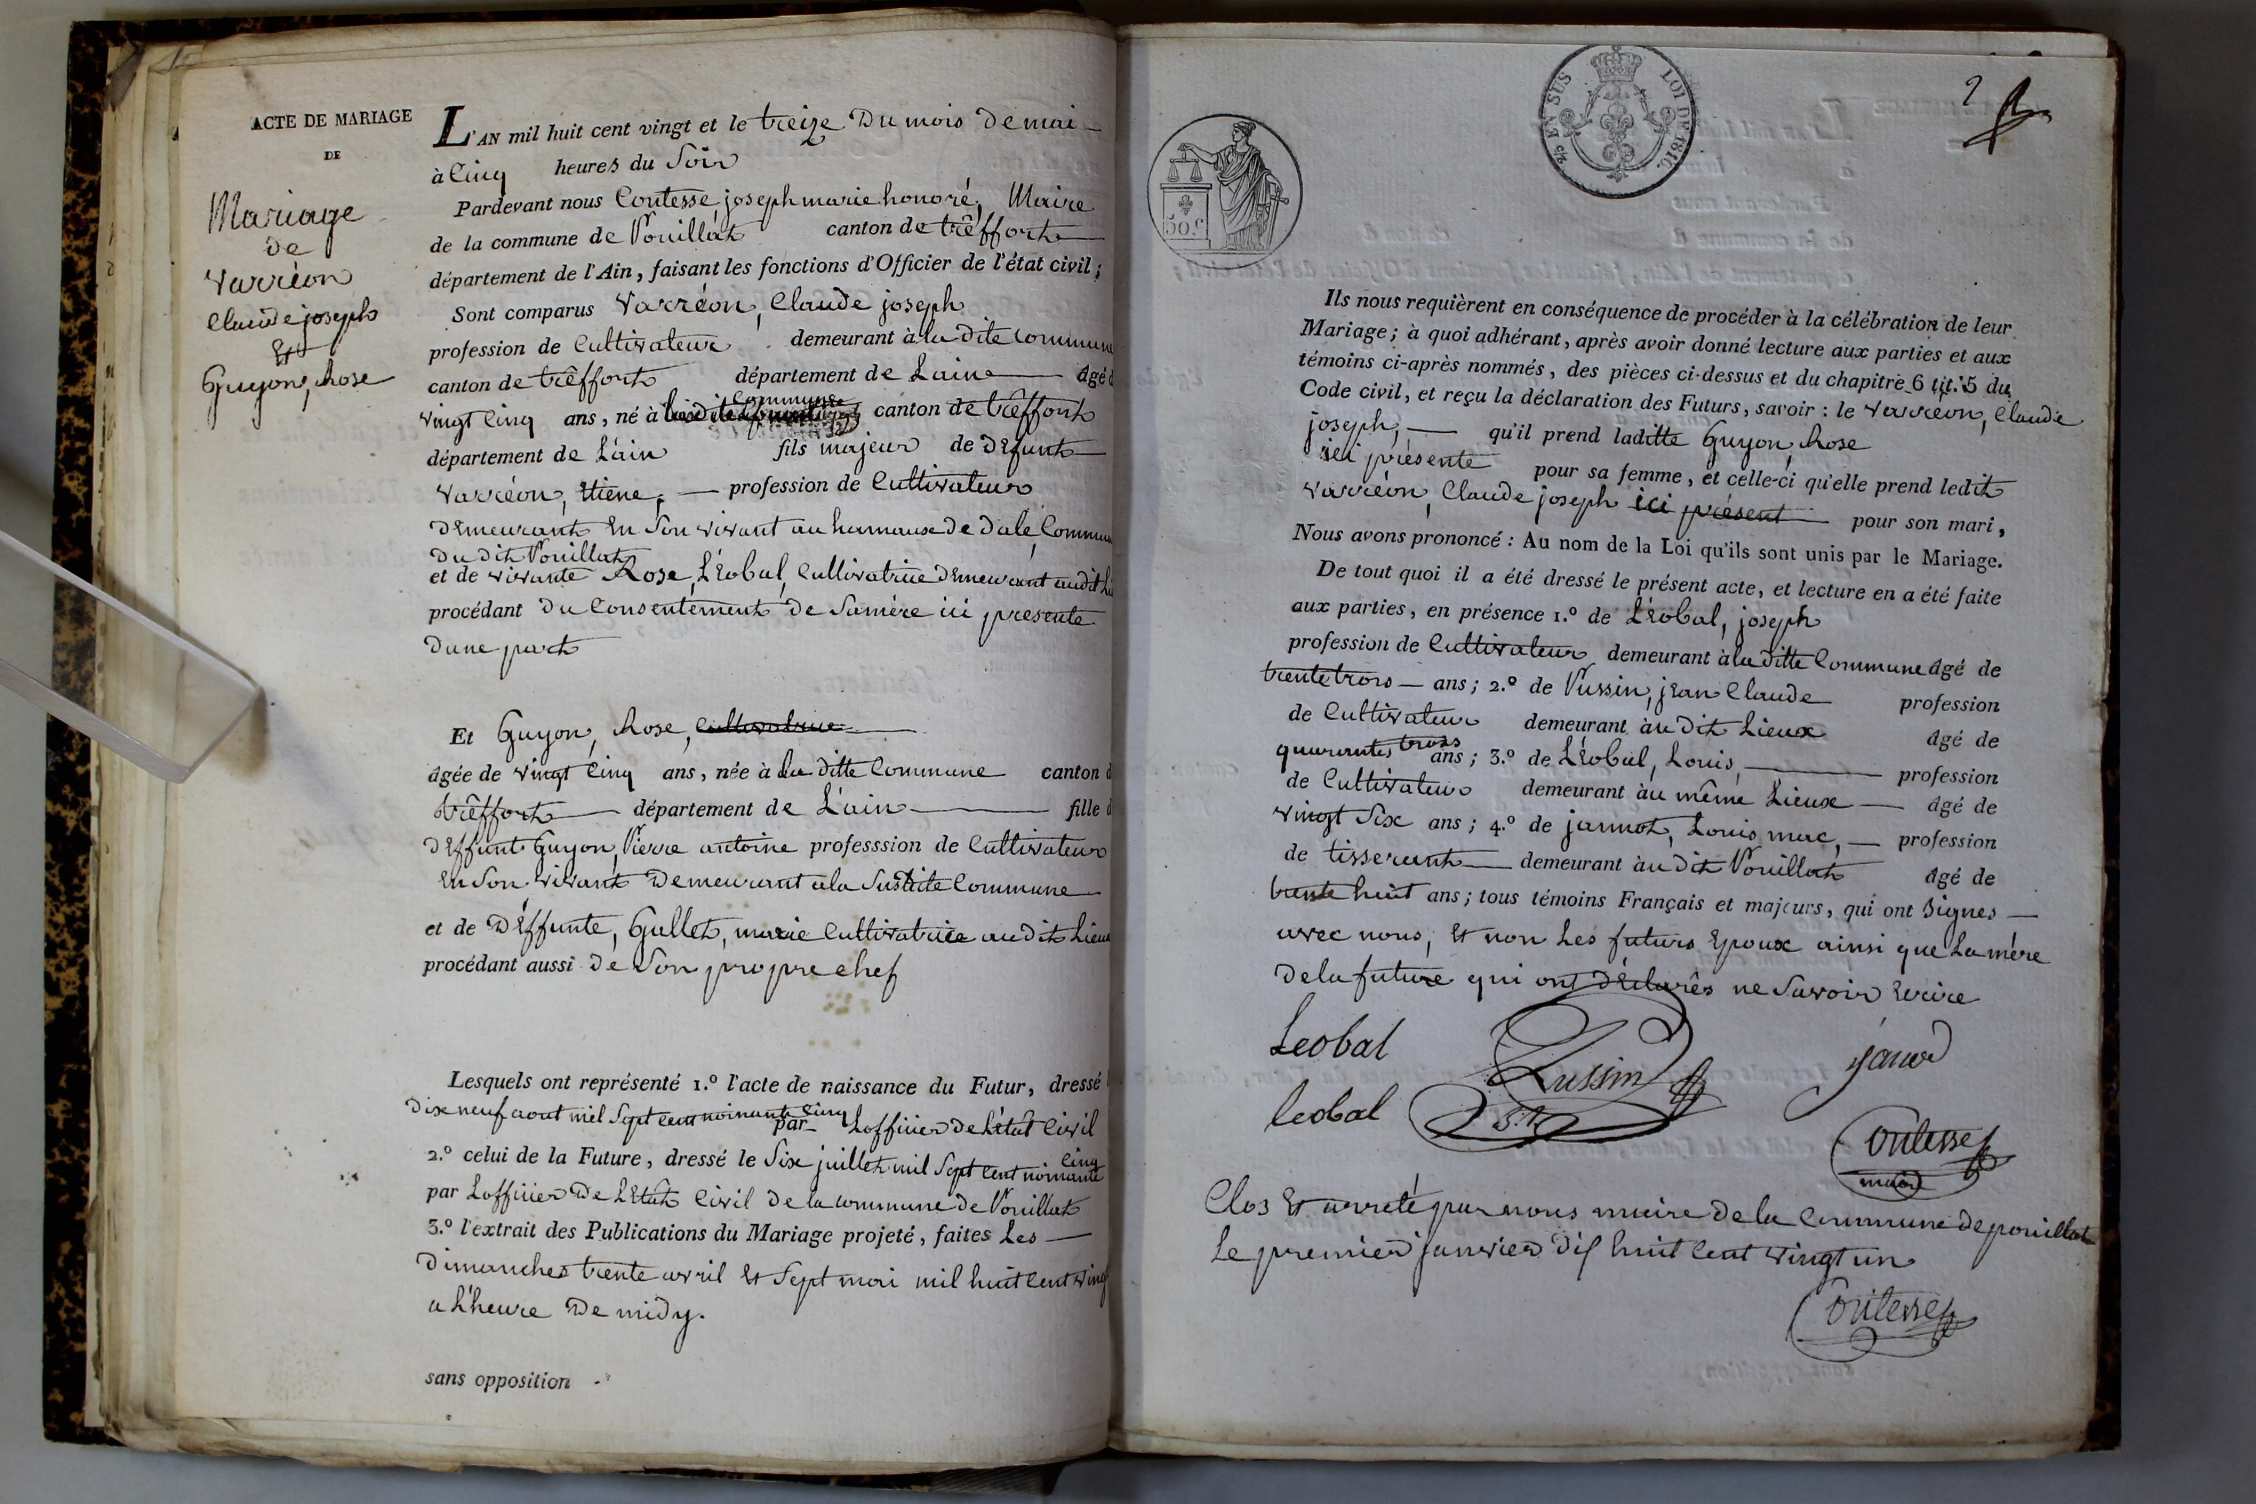 ACTE DE MARIAGE
DE
Mariage
de
Varréon
Claude joseph
Et
Guyon, Rose
L'AN mil huit cent vingt et le treize Du mois De mai
à Cinq heures du Soir
Pardevant nous Contesse, joseph marie honoré, Maire
de la commune de Pouillat canton de trêffort
département de l'Ain, faisant les fonctions d'Officier de l'état civil;
Sont comparus Varréon, Claude joseph
profession de Cultivateur demeurant à la dite commune
canton de trêffort département de Lain âgé
vingt Cinq ans, né à commune canton de trêffort
département de L'ain fils majeur de Défunt
Varréon, Etiene, profession de Cultivateur
Demeurant En Son vivant au hamaux de dalé, Commun
Du dit Pouillat
et de vivante Rose, Léobal, Cultivatrice Demeurant audit
procédant Du Consentement De Samère ici présente
Dune part
Et Guyon, Rose, Cultivatrice
âgée de vingt Cinq ans, née à La ditte Commune canton
trêffort département de L'ain fille
Deffunt Guyon, Pierre antoine professsion de Cultivateur
En Son vivant Demeurant ala Susdite Commune
et de Déffunte, Gullet, marie Cultivatrice audit Lieux
procédant aussi De Son propre chef
Lesquels ont représenté 1.º l'acte de naissance du Futur, dressé
Dixneuf aout mil Sept cent noinante Cinq par Lofficier De L'état Civil
2.º celui de la Future, dressé le Six juillet mil Sept Cent noinante Cinq
par Lofficier De L'Etat Civil de la commune de Pouillat
3.º l'extrait des Publications du Mariage projeté, faites Les
Dimanches trente avril Et Sept mai mil huit Cent ving
a L'heure De midy.
sans opposition
2
EN SUS
LOI DE 1816.
50.c
Ils nous requièrent en conséquence de procéder à la célébration de leur
Mariage; à quoi adhérant, après avoir donné lecture aux parties et aux
témoins ci-après nommés, des pièces ci-dessus et du chapitre 6 tit. 5 du
Code civil, et reçu la déclaration des Futurs, savoir : le Varréon, Claude
joseph, qu'il prend laditte Guyon, Rose
ici présente pour sa femme, et celle-ci qu'elle prend ledit
Varréon, Claude joseph ici présent pour son mari,
Nous avons prononcé : Au nom de la Loi qu'ils sont unis par le Mariage.
De tout quoi il a été dressé le présent acte, et lecture en a été faite
aux parties, en présence 1.º de Léobal, joseph
profession de Cultivateur demeurant à la ditte Commune âgé de
trente trois ans; 2.º de Pussin, jean Claude profession
de Cultivateur demeurant àu Dit Lieux âgé de
quarantes trois ans; 3.º de Léobal, Louis, profession
de Cultivateur demeurant àu même Lieux âgé de
vingt Six ans; 4.º de jannot, Louis, marc, profession
de tisserant demeurant àu dit Pouillat âgé de
trente huit ans; tous témoins Français et majeurs, qui ont Signes
avec nous, Et non Les futurs Epoux ainsi que La mère
De la future qui ont Déclarés ne Savoir Ecrire
Leobal
Pussin
leobal
Contesse
maire
Clos Et arreté par nous maire De la Commune de pouillat
Le premier janvier Dix huit Cent vingt un
Contesse